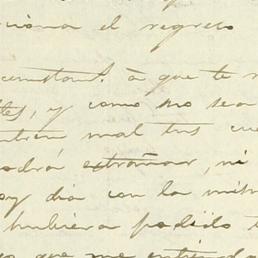 ciona el regreso
constant. à que te
tes, y como no sea
entren mal tus cue
odrá extrañar, ni
oy dia con la mism
hubiera podido t
o que me entiendo